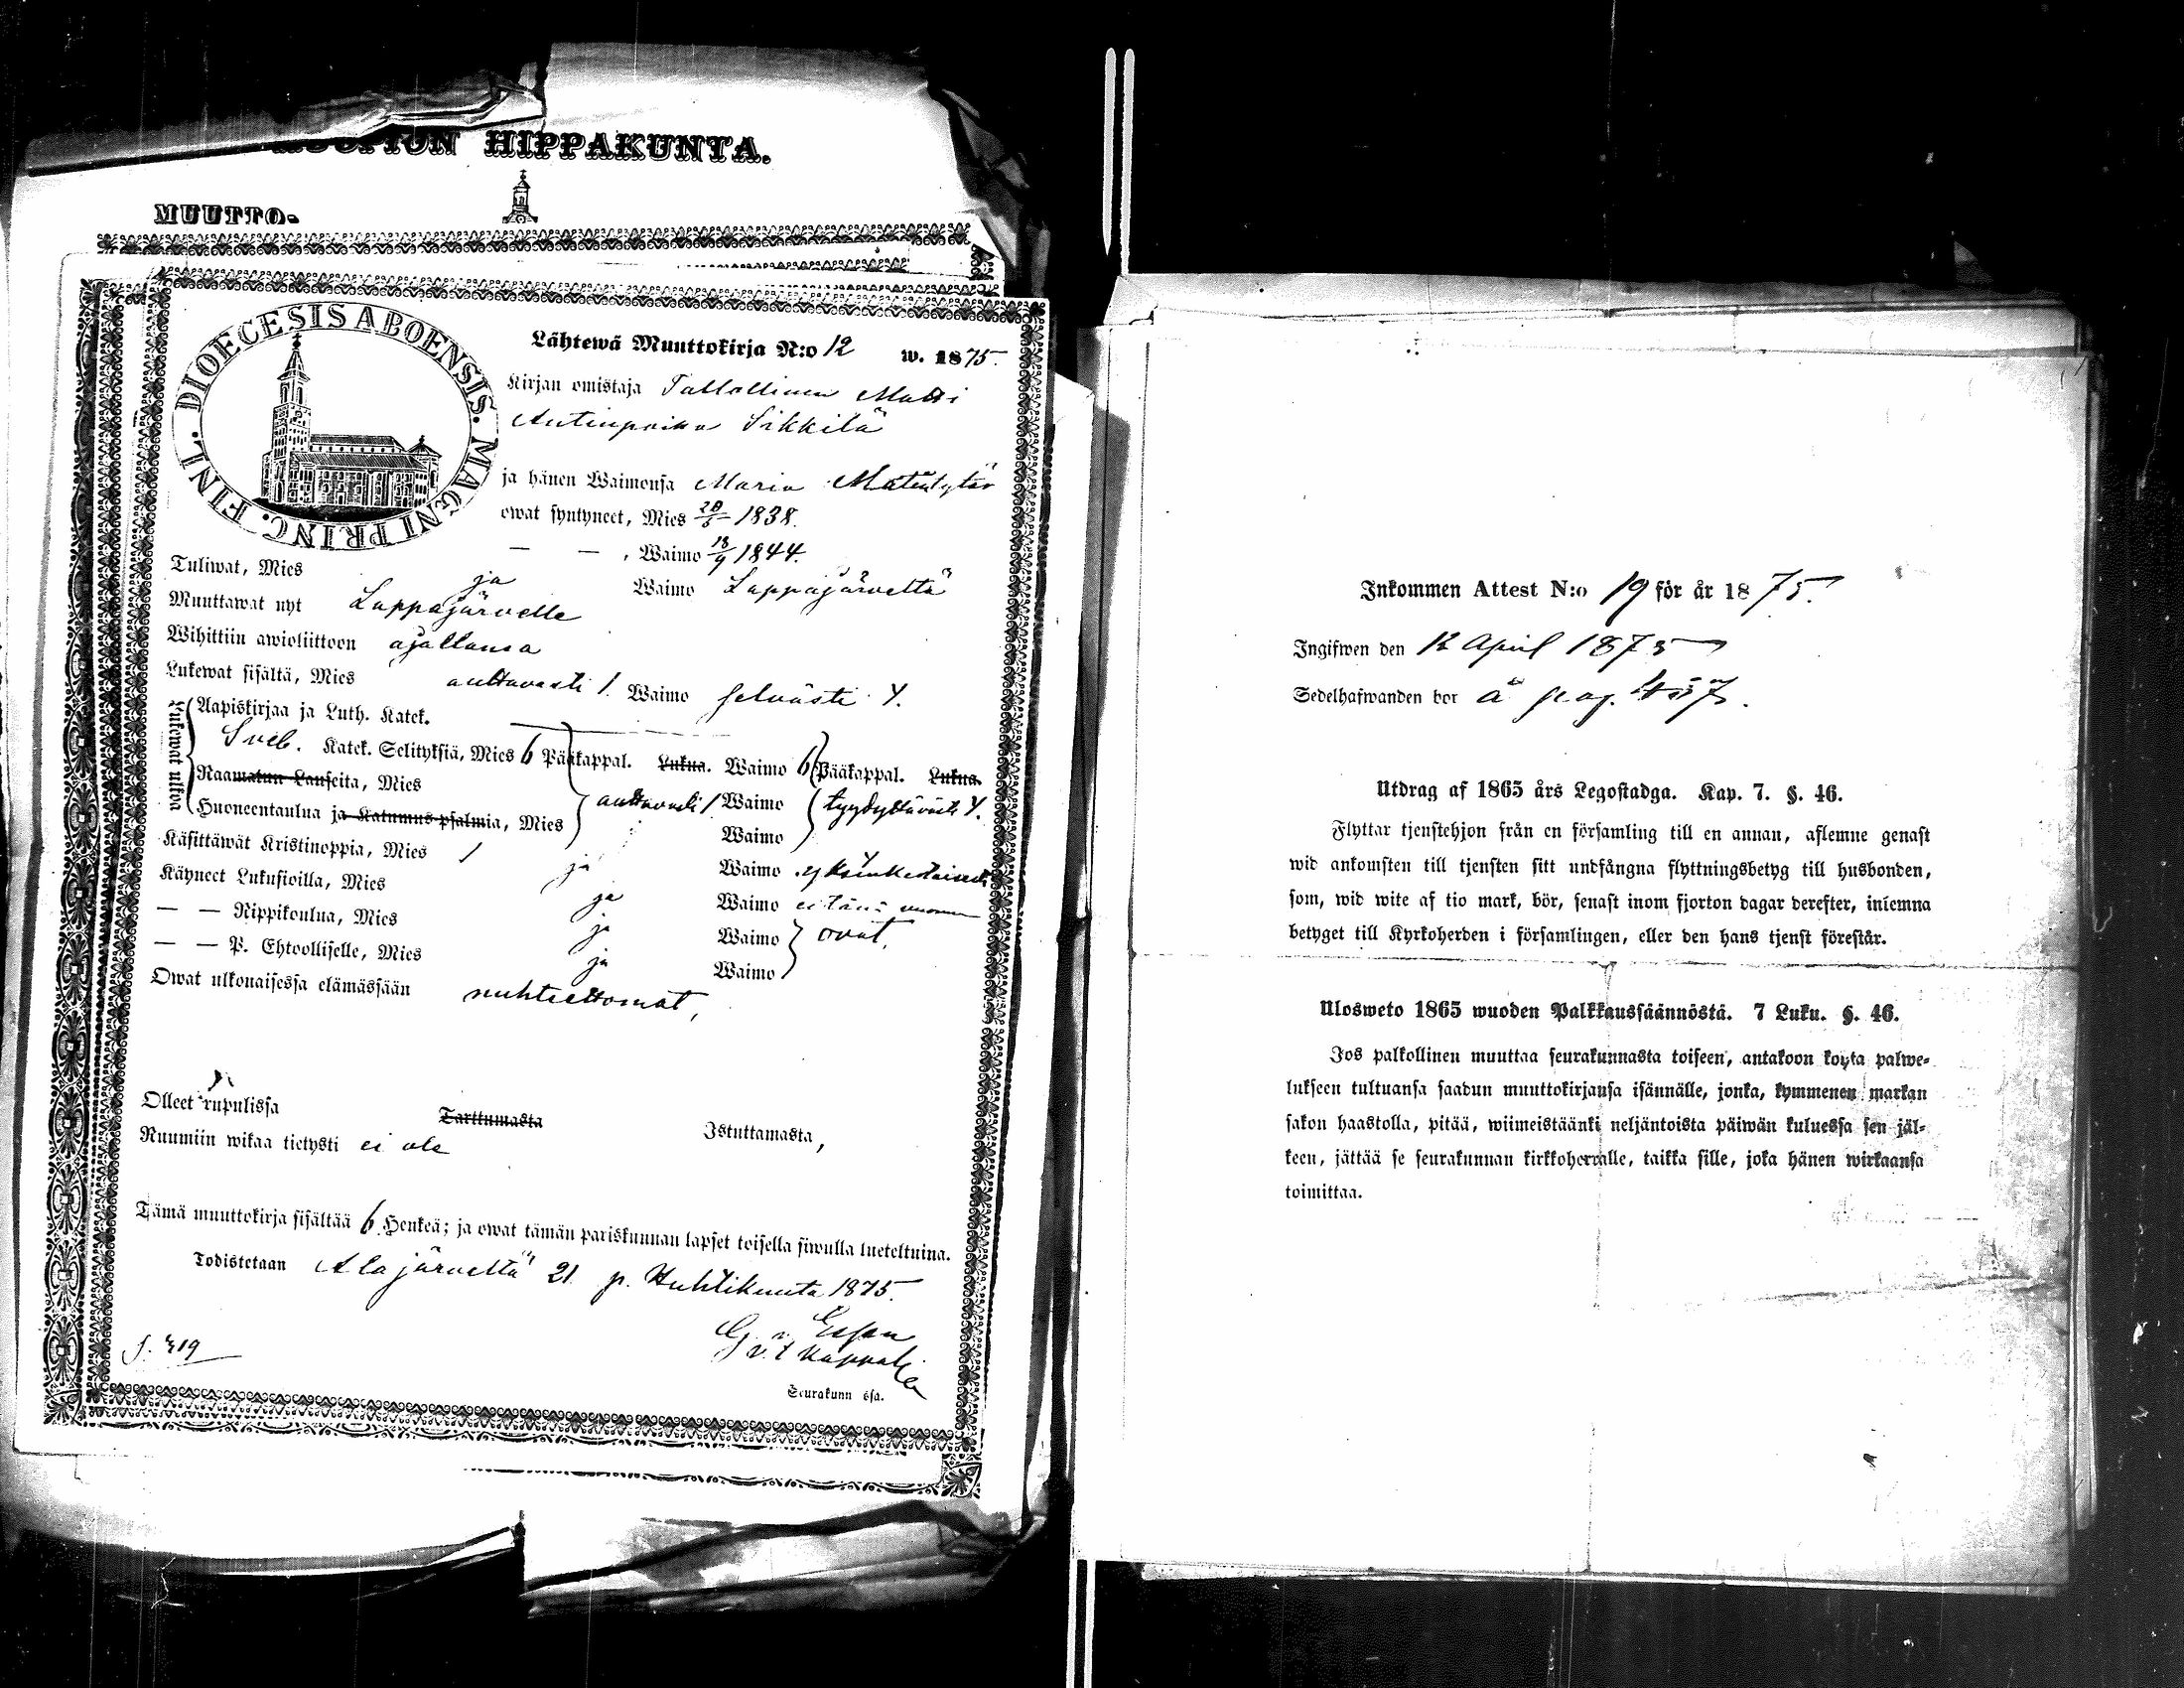 KUOPION HIPPAKUNTA.
MUUTTO-
DIOECESIS ABOENSIS. MAGNI PRINC. FINL.
Lähtewä Muuttokirja N:o 12 w. 1875.
Kirjan omistaja Talollinen Matti
Antinpoika Sikkilä
ja hänen Waimonsa Maria Matintytär
owat syntyneet, Mies 28/5 1838.
— — , Waimo 18/9 1844.
Tuliwat, Mies ja Waimo Lappajärveltä
Muuttawat nyt Lappajärvelle
Wihittiin awioliittoon ajallansa
Lukewat sisältä, Mies auttavasti /. Waimo selvästi Y.
Lukewat ulkoa
Aapiskirjaa ja Luth. Katek.
Sveb. Katek. Selityksiä, Mies 6 Pääkappal. Lukua. Waimo 6 Pääkappal. Lukua.
Raamatun Lauseita, Mies auttavasti / Waimo tyydyttäväst. Y.
Huoneentaulua ja Katumus-psalmia, Mies Waimo
Käsittäwät Kristinoppia, Mies / ja Waimo Y
Käyneet Lukusioilla, Mies ja Waimo ei tänä vuonna
— — Rippikoulua, Mies ja Waimo ovat.
— — P. Ehtoolliselle, Mies ja Waimo
Owat ulkonaisessa elämässään nuhteettomat,
Olleet rupulissa Tarttumasta Istuttamasta,
Ruumiin wikaa tietysti ei ole
Tämä muuttokirja sisältää 6 Henkeä; ja owat tämän pariskunnan lapset toisella siwulla lueteltuina.
Todistetaan Alajärveltä 21 p. Huhtikuuta 1875.
G. v. Essen
v.t. Kappalainen
S. 419
Seurakunn ssa.
Inkommen Attest N:o 19 för år 1875.
Ingifwen den 12 April 1875
Sedelhafwanden bor å pag.
Utdrag af 1865 års Legostadga. Kap. 7. §. 46.
Flyttar tjenstehjon från en församling till en annan, aflemne genast
wid ankomsten till tjensten sitt undfångna flyttningsbetyg till husbonden,
som, wid wite af tio mark, bör, senast inom fjorton dagar derefter, inlemna
betyget till Kyrkoherden i församlingen, eller den hans tjenst förestår.
Ulosweto 1865 wuoden Palkkaussäännöstä. 7 Luku. §. 46.
Jos palkollinen muuttaa seurakunnasta toiseen, antakoon kohta palwe-
lukseen tultuansa saadun muuttokirjansa isännälle, jonka, kymmenen markan
sakon haastolla, pitää, wiimeistäänki neljäntoista päiwän kuluessa sen jäl-
keen, jättää se seurakunnan kirkkoherralle, taikka sille, joka hänen wirkaansa
toimittaa.